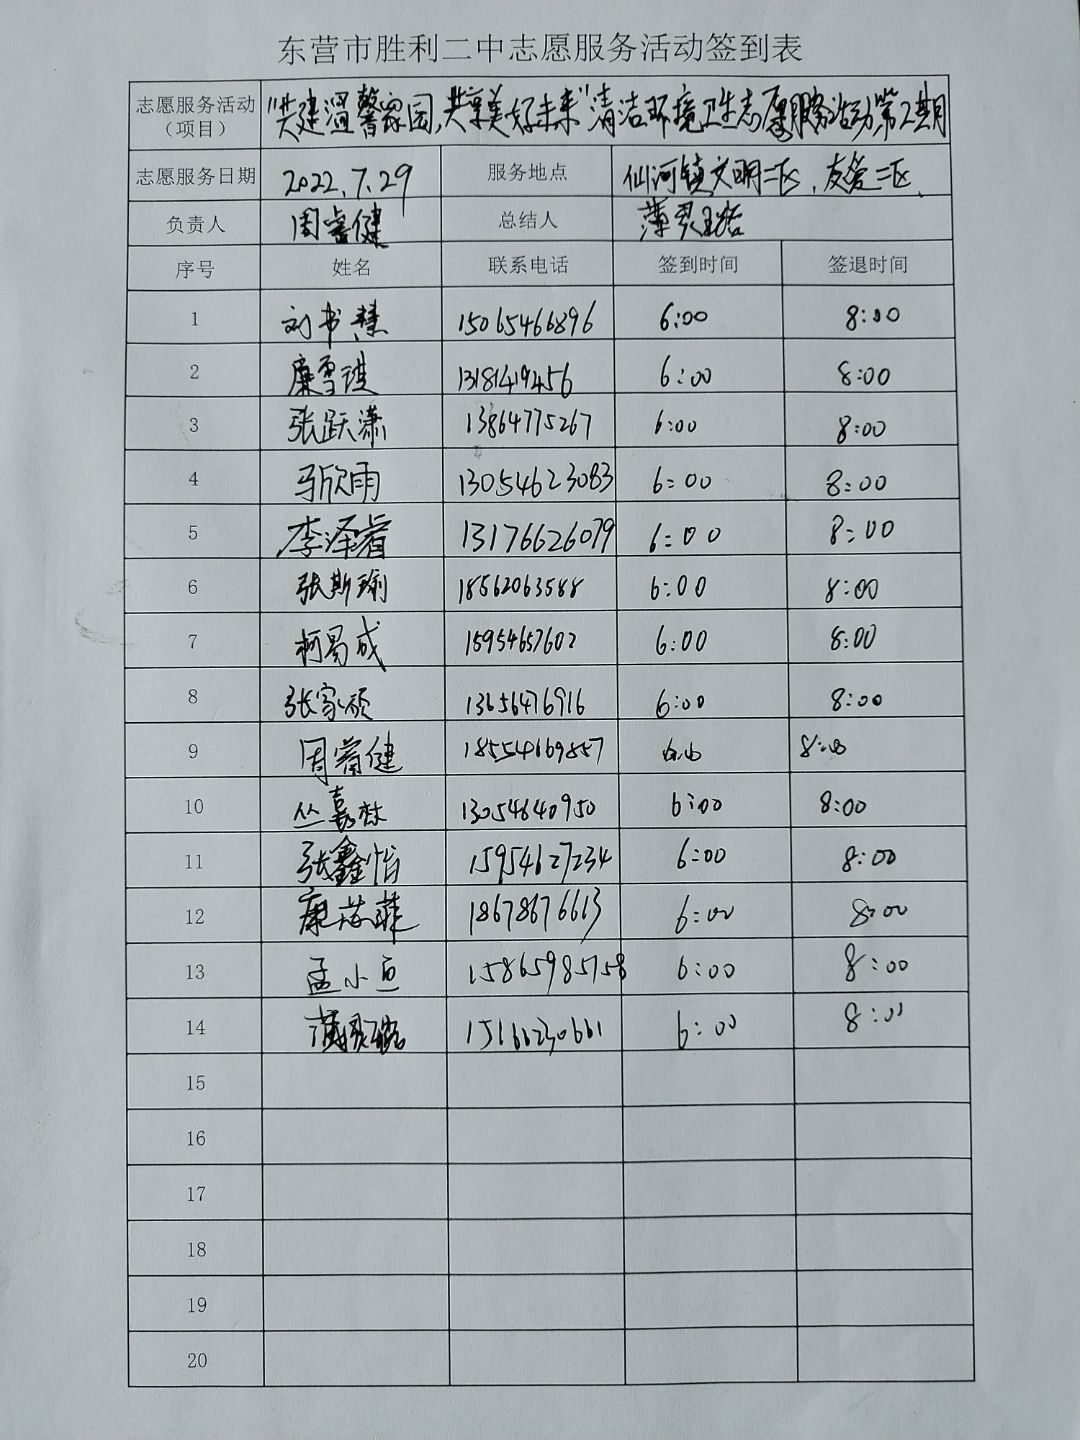 东营市胜利二中志愿服务活动签到表
志愿服务活动（项目） "共建温馨家园,共享美好未来"清洁环境卫生志愿服务活动第2期
志愿服务日期 2022.7.29 服务地点 仙河镇文明二区、友爱三区
负责人 周睿健 总结人 薄灵
序号 姓名 联系电话 签到时间 签退时间
1 刘书慧 15065466896 6:00 8:00
2 廉雪琪 13181419456 6:00 8:00
3 张跃潇 13864775267 6:00 8:00
4 马欣雨 13054623083 6:00 8:00
5 李泽睿 13176626079 6:00 8:00
6 张斯瑜 18562063588 6:00 8:00
7 柯易成 15954657602 6:00 8:00
8 张家硕 13656476916 6:00 8:00
9 周睿健 18554669857 6:00 8:00
10 丛嘉林 13054640950 6:00 8:00
11 张鑫怡 15954627234 6:00 8:00
12 康芯菲 18678676613 6:00 8:00
13 孟小 15865985758 6:00 8:00
14 15166230661 6:00 8:00
15
16
17
18
19
20